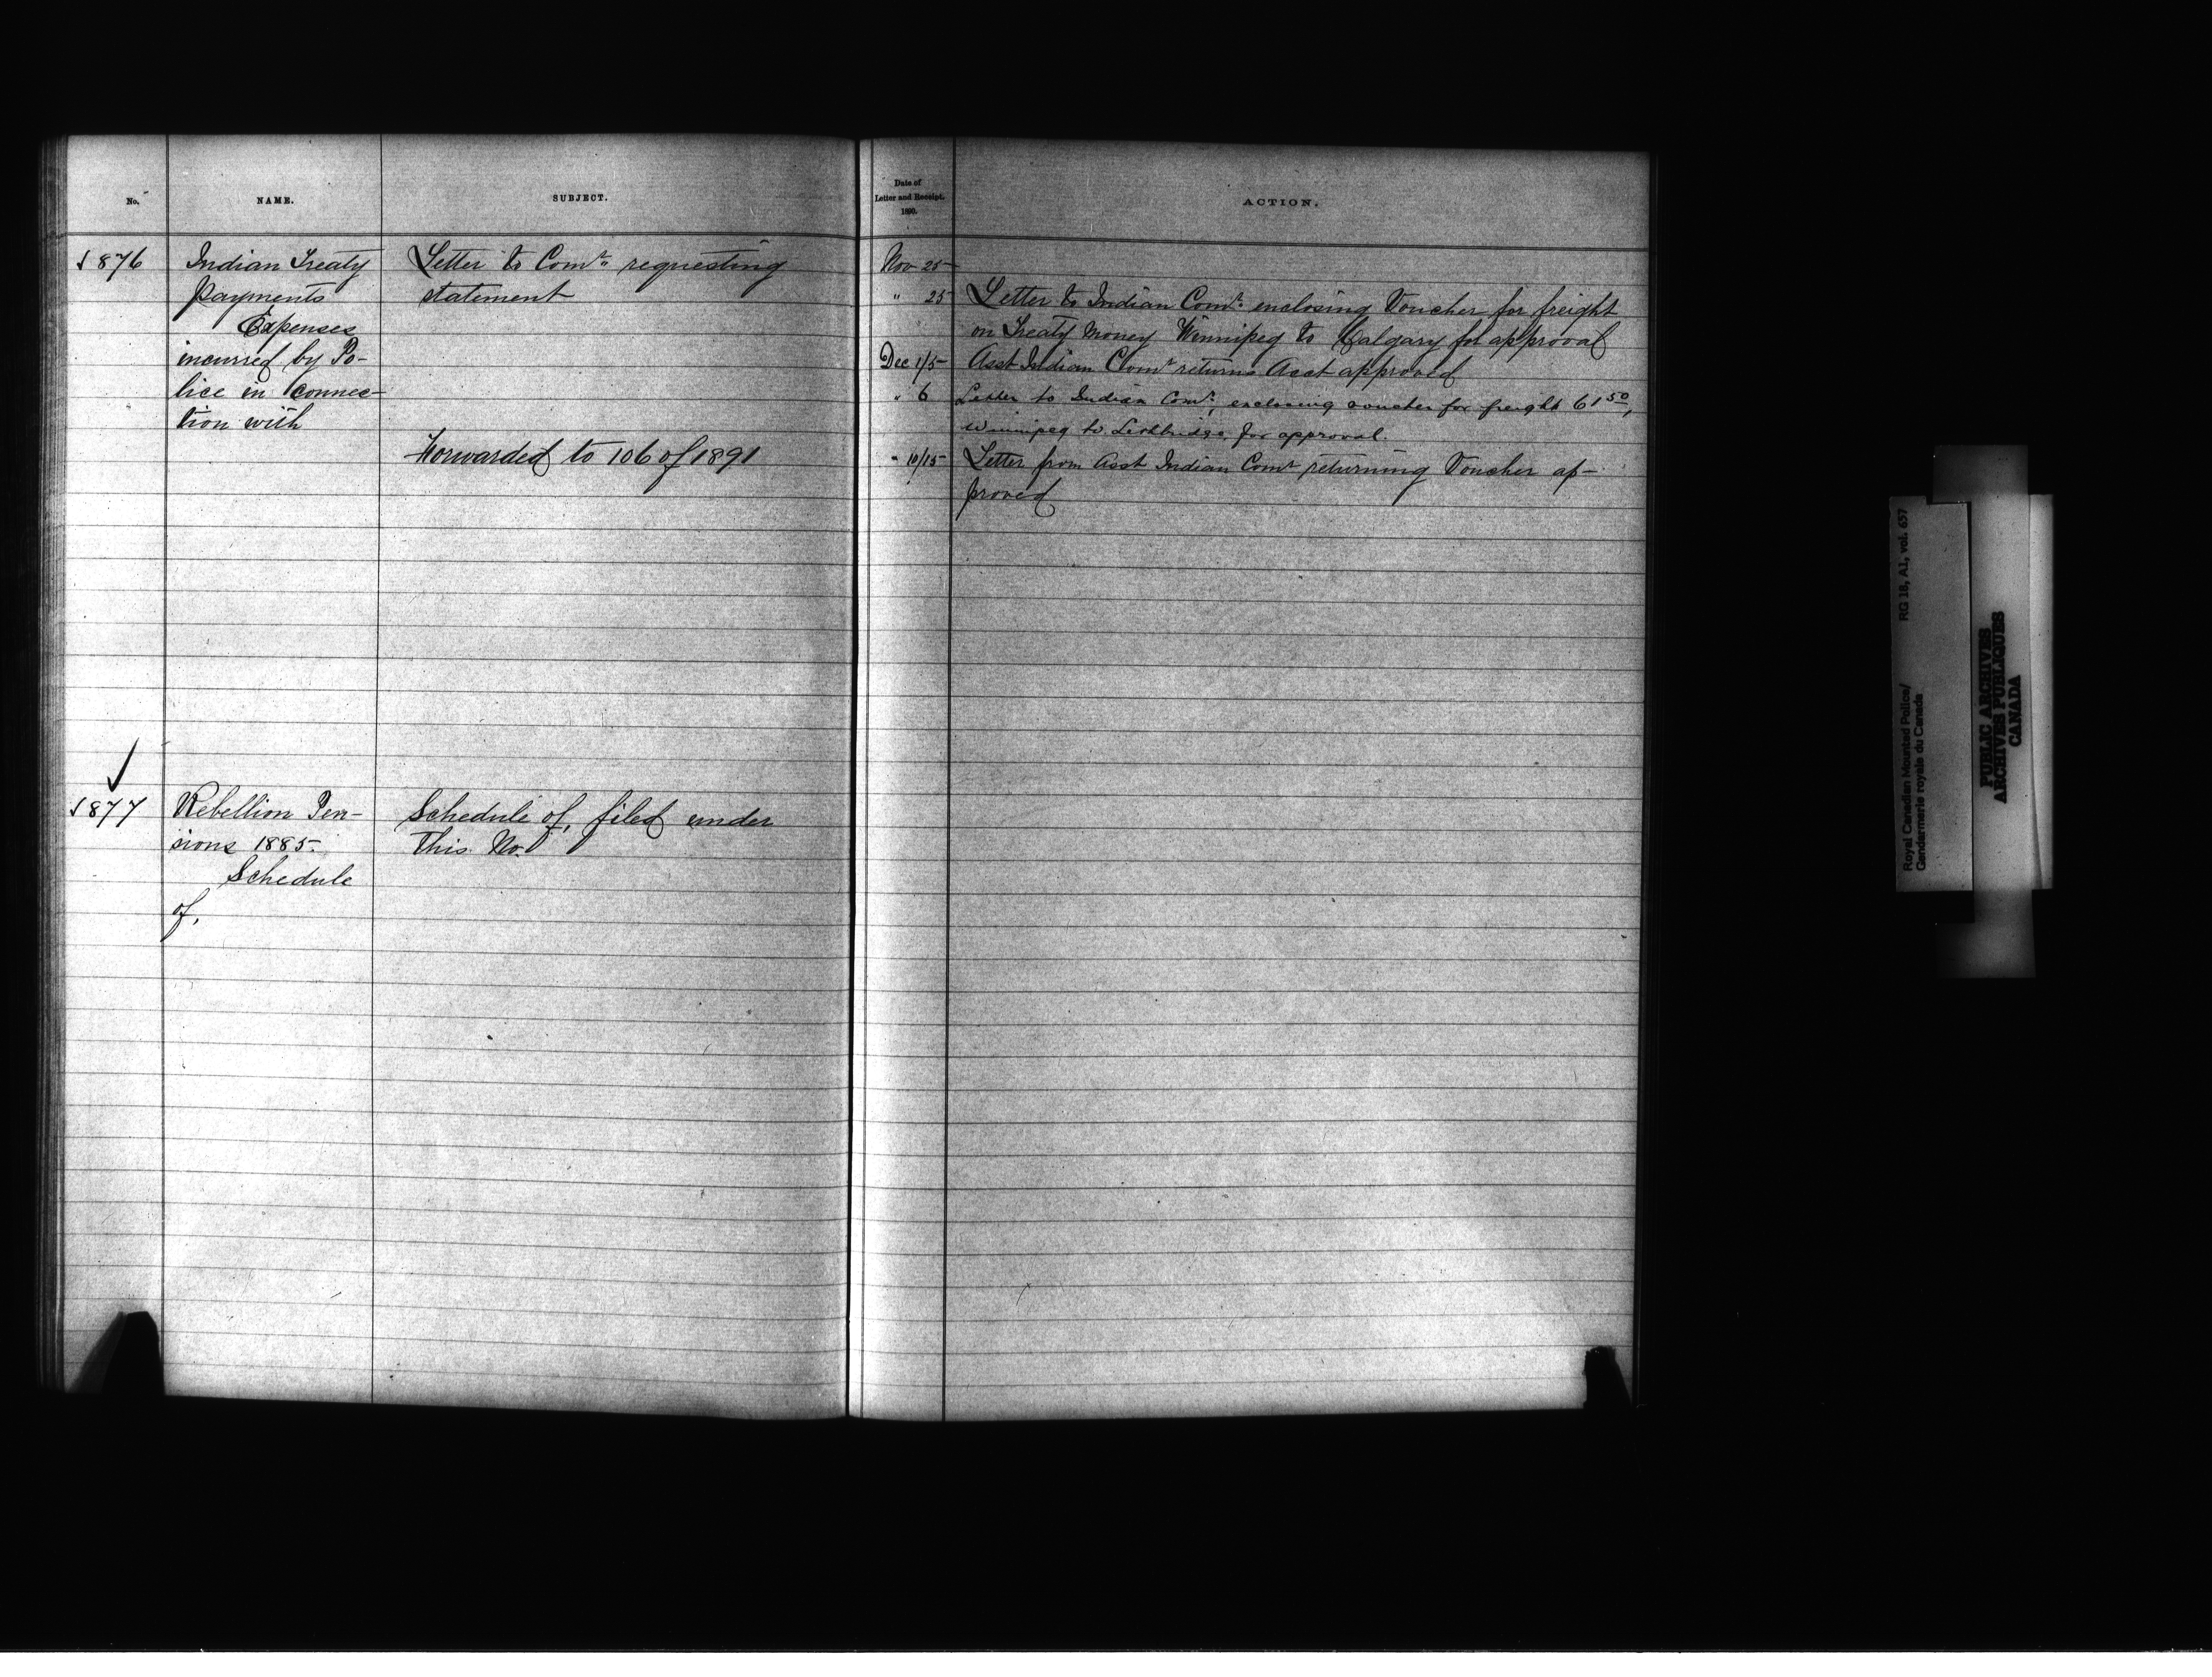 No.
NAME.
SUBJECT.
Date of
Letter and Receipt.
1890.
ACTION.
1876
Indian Treaty
Payments
Expenses
incurred by Po-
lice in connec-
tion with
Letter to Comr. requesting
statement
Forwarded to 106 of 1891
Nov 25
" 25 Letter to Indian Comr. enclosing Voucher for freight
on Treaty Money Winnipeg to Calgary for approval
Dec 1/5 Asst Indian Comr returns Acct approved
" 6 Letter to Indian Comr. enclosing voucher for freight 61 50,
Winnipeg to Lethbridge, for approval.
" 10/15 Letter from Asst Indian Comr returning Voucher ap-
proved
✓
1877
Rebellion Pen-
sions 1885.
Schedule
of,
Schedule of, filed under
this No.
Royal Canadian Mounted Police/ RG 18, A1, vol. 657
Gendarmerie royale du Canada
PUBLIC ARCHIVES
ARCHIVES PUBLIQUES
CANADA